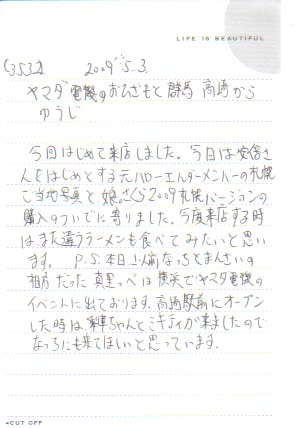 LIFE IS BEAUTIFUL
(3532) 2009.5.3.
ヤマダ電機のおひざもと群馬 高崎から
ゆうじ
今回はじめて来店しました。今日は安倍さ
んをはじめとする元ハローエルダーメンバーの札幌
ご当地写真と娘。さくら2009札幌バージョンの
購入のついでに寄りました。今度来店する時
は、また違うラーメンも食べてみたいと思い
ます。 P.S.本日さん前なっちとまんさいの
相方だった真里っぺは横浜でヤマダ電機の
イベントに出ております。高崎駅前にオープン
した時は、ちゃんとミキティが来ましたので
なっちにも来てほしいと思っています。
CUT OFF